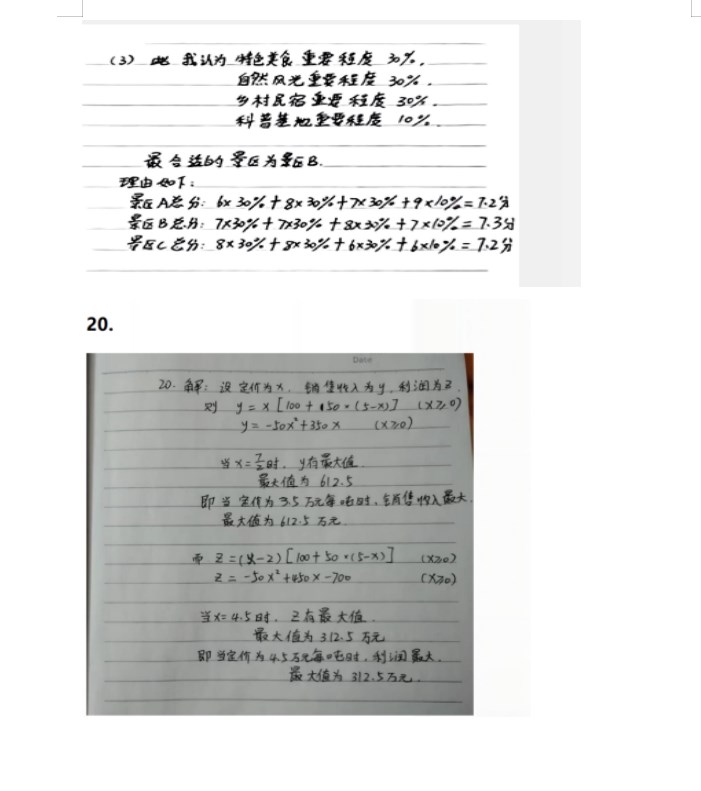 (3) 我认为 特色美食 重要程度 30%,
自然风光重要程度 30%.
乡村民宿重要程度 30%.
科普基地重要程度 10%.
最合适的景区为景区B.
理由如下:
景区A总分: 6×30%+8×30%+7×30%+9×10%=7.2分
景区B总分: 7×30%+7×30%+8×30%+7×10%=7.3分
景区C总分: 8×30%+8×30%+6×30%+6×10%=7.2分
20.
Date
20. 解: 设定价为x. 销售收入为y. 利润为z.
则 y=x[100+50×(5-x)] (x≥0)
y=-50x²+350x (x≥0)
当x=7/2时. y有最大值
最大值为 612.5
即当定价为 3.5 万元每吨时, 销售收入最大.
最大值为 612.5 万元.
而 z=(x-2)[100+50×(5-x)] (x≥0)
z=-50x²+450x-700 (x≥0)
当x=4.5时. z有最大值.
最大值为 312.5 万元
即当定价为 4.5万元每吨时. 利润最大.
最大值为 312.5万元.